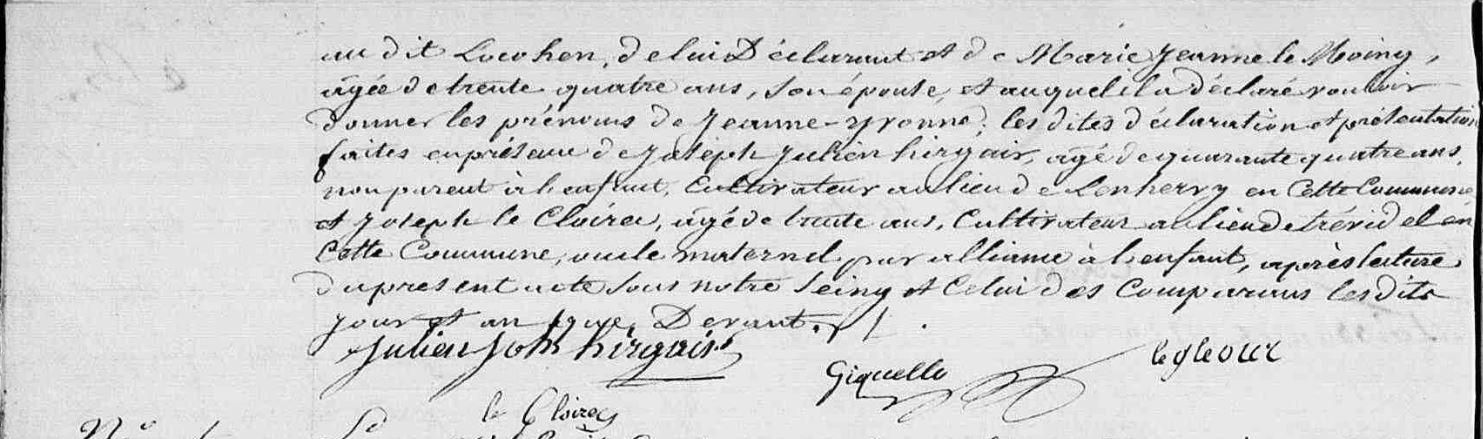 au dit Locohen, de lui Déclarant et de Marie Jeanne le Moing,
âgée de trente quatre ans, son épouse, et auquel il a déclaré vouloir
donner les prénoms de Jeanne-Yvonne; les dites déclaration et présentation
faites en présence de Joseph Julien hirgair, âgé de quarante quatre ans,
non parent à l'enfant, Cultivateur au lieu de Lenhervy en Cette Commune
et Joseph le Cloirec, âgé de trente ans, Cultivateur au lieu de trévidel en
Cette Commune, oncle maternel par alliance à l'enfant, après lecture
du présent acte sous notre seing et Celui des Comparans les dits
jour et an que Devant.
Julien Joh hirgair
Giquello
le gleouic
le Cloirec